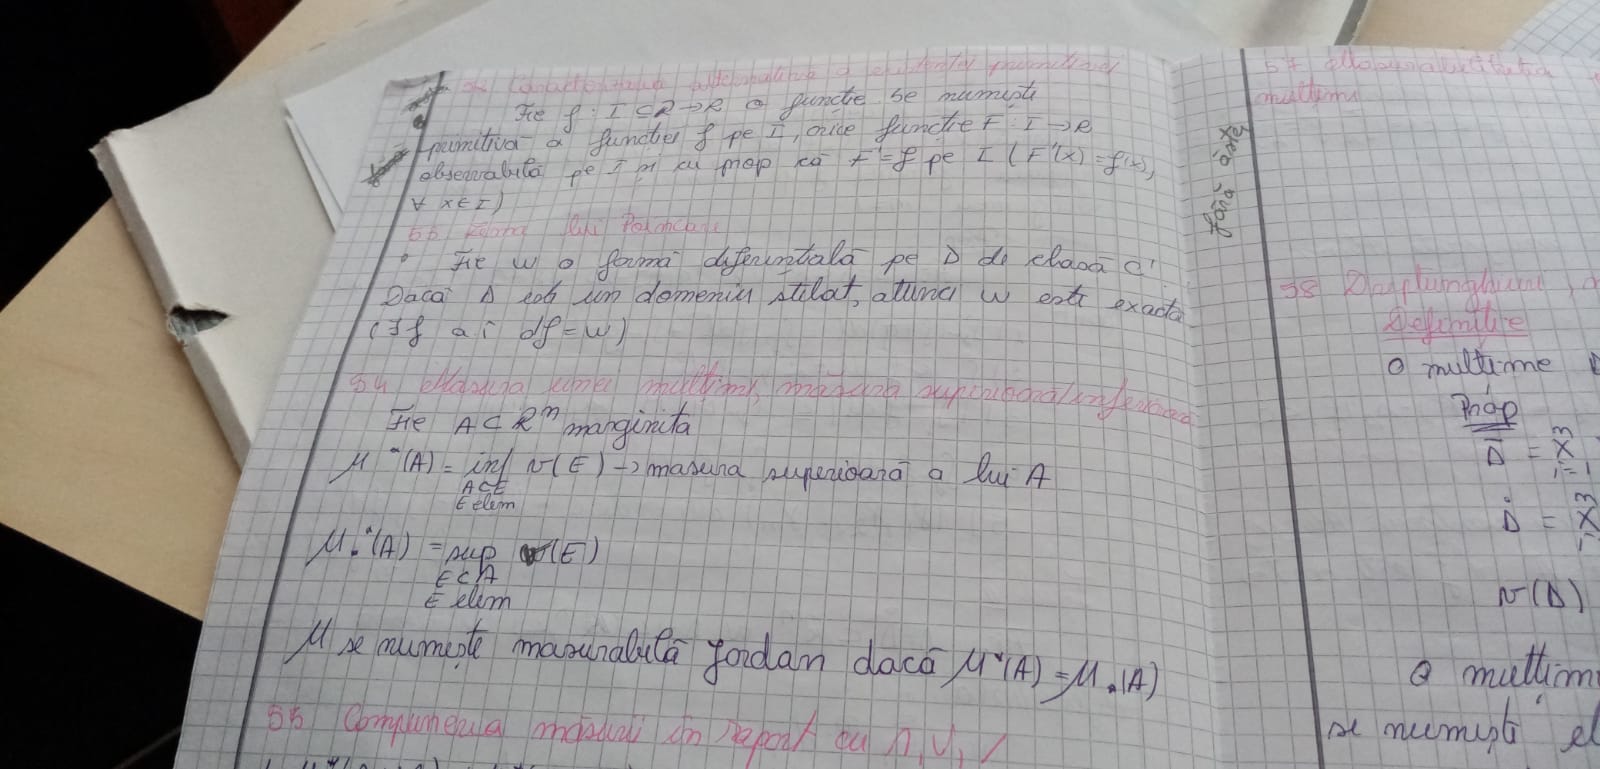 Fie f: I ⊂ R → R o funcție se numește
primitivă a funcției f pe I, orice funcție F: I → R
pe I și cu prop că F' = f pe I (F'(x) = f(x),
∀ x ∈ I)
lui Poincare
• Fie w o formă diferențială pe D de clasă C'
Dacă D este un domeniu stelat, atunci w este exactă
(∃ f a.î df = w)
54 Masura unei multimi, măsura superioara/inferioara
Fie A ⊂ Rⁿ marginita
μ*(A) = inf v(E) → masura superioară a lui A
A⊂E
E elem
μ*(A) = sup v(E)
E⊂A
E elem
M se numește masurabilă Jordan dacă μ*(A) = μ*(A)
55 măsurii în raport cu ∩, ∪, \
fără axe
57
multimii
58
Definiție
O multime
Prop
D = X³
i=1
D = X³
v(D)
O multim
se numește el